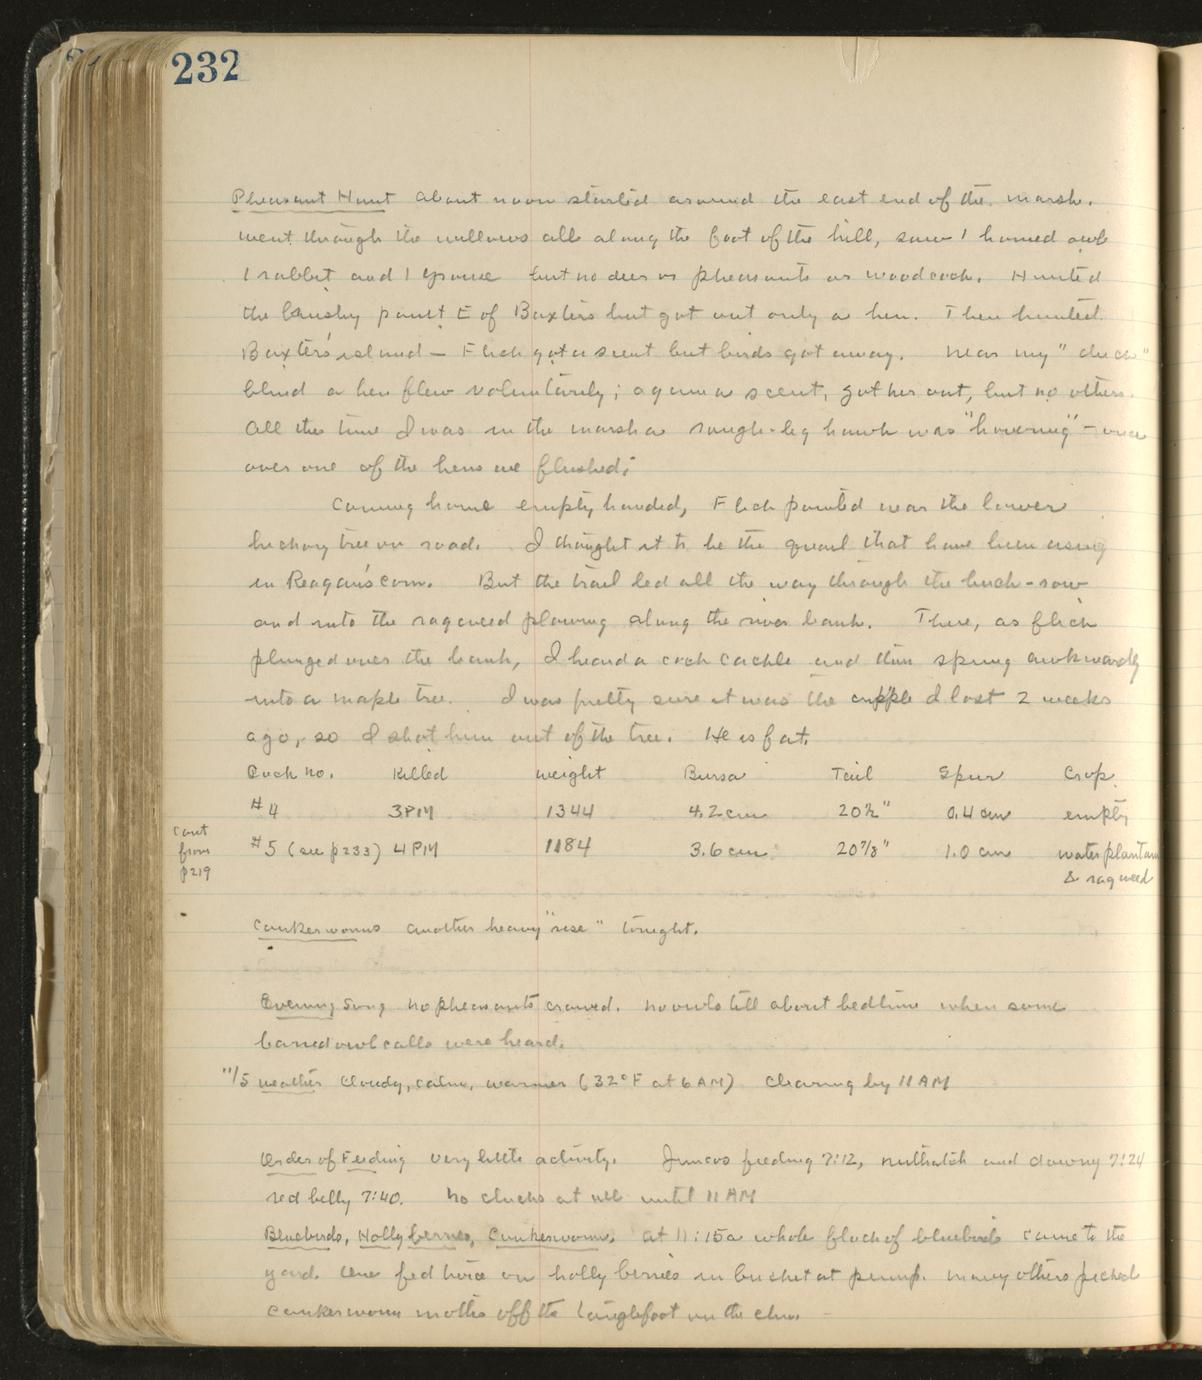 232
Pheasant Hunt about noon started around the east end of the marsh.
went through the willows all along the foot of the hill, saw 1 horned owl
1 rabbit and 1 grouse but no deer or pheasants or woodcock. Hunted
the brushy point E of Baxters but got out only a hen. Then hunted
Baxter's island — Flick got a scent but birds got away. Near my "duck"
blind a hen flew voluntarily; again a scent, got her out, but no others.
All the time I was in the marsh a rough-leg hawk was "hovering" - once
over one of the hens we flushed.
Coming home empty handed, Flick pointed near the lower
hickory tree on road. I thought it to be the quail that have been using
in Reagan's corn. But the trail led all the way through the birch-row
and into the ragweed plowing along the river bank. There, as flick
plunged over the bank, I heard a cock cackle and then spring awkwardly
into a maple tree. I was pretty sure it was the cripple I lost 2 weeks
ago, so I shot him out of the tree. He is fat.
Cock no. Killed Weight Bursa Tail Spur Crop
#4 3PM 1344 4.2 cm 20½" 0.4 cm empty
Cont from p219
#5 (see p233) 4 PM 1184 3.6 cm 20⅞" 1.0 cm water plantain
& ragweed
Cankerworms another heavy "rise" tonight.
Evening Song no pheasants crowed. no owls till about bedtime when some
barred owl calls were heard.
11/5 weather Cloudy, calm, warmer (32°F at 6 AM) Clearing by 11 AM
Order of Feeding very little activity. Juncos feeding 7:12, nuthatch and downy 7:24
red belly 7:40. No chicks at all until 11 AM
Bluebirds, Holly berries, Cankerworm. At 11:15 a whole flock of bluebirds came to the
yard. One fed twice on holly berries in bucket at pump. Many others picked
cankerworm moths off the tanglefoot on the elms.